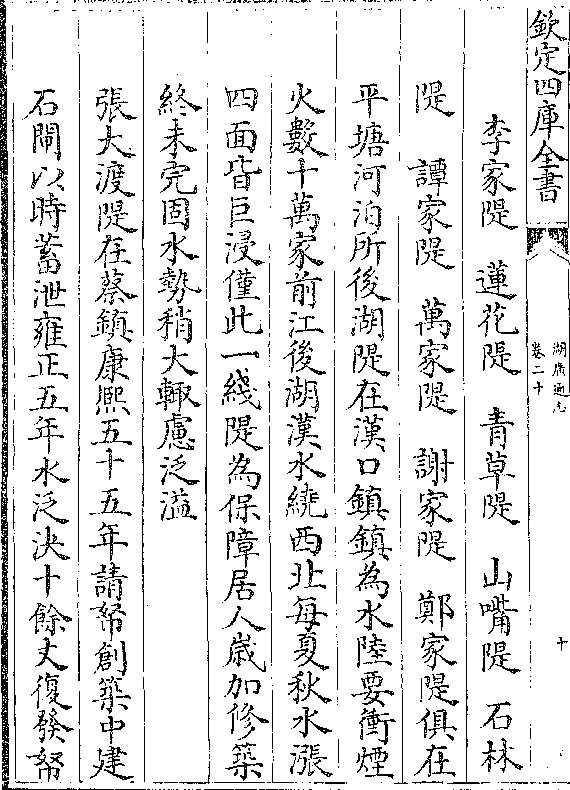 欽定四庫全書
湖廣通志
卷二十
十
李家隄　蓮花隄　青草隄　山嘴隄　石林
隄　譚家隄　萬家隄　謝家隄　鄭家隄俱在
平塘河泊所後湖隄在漢口鎮鎮為水陸要衝煙
火數十萬家前江後湖漢水繞西北每夏秋水漲
四面皆巨浸僅此一綫隄為保障居人嵗加修築
終未完固水勢稍大輙慮泛溢
張大渡隄在蔡鎮康熙五十五年請帑創築中建
石閘以時蓄泄雍正五年水泛決十餘丈復發帑